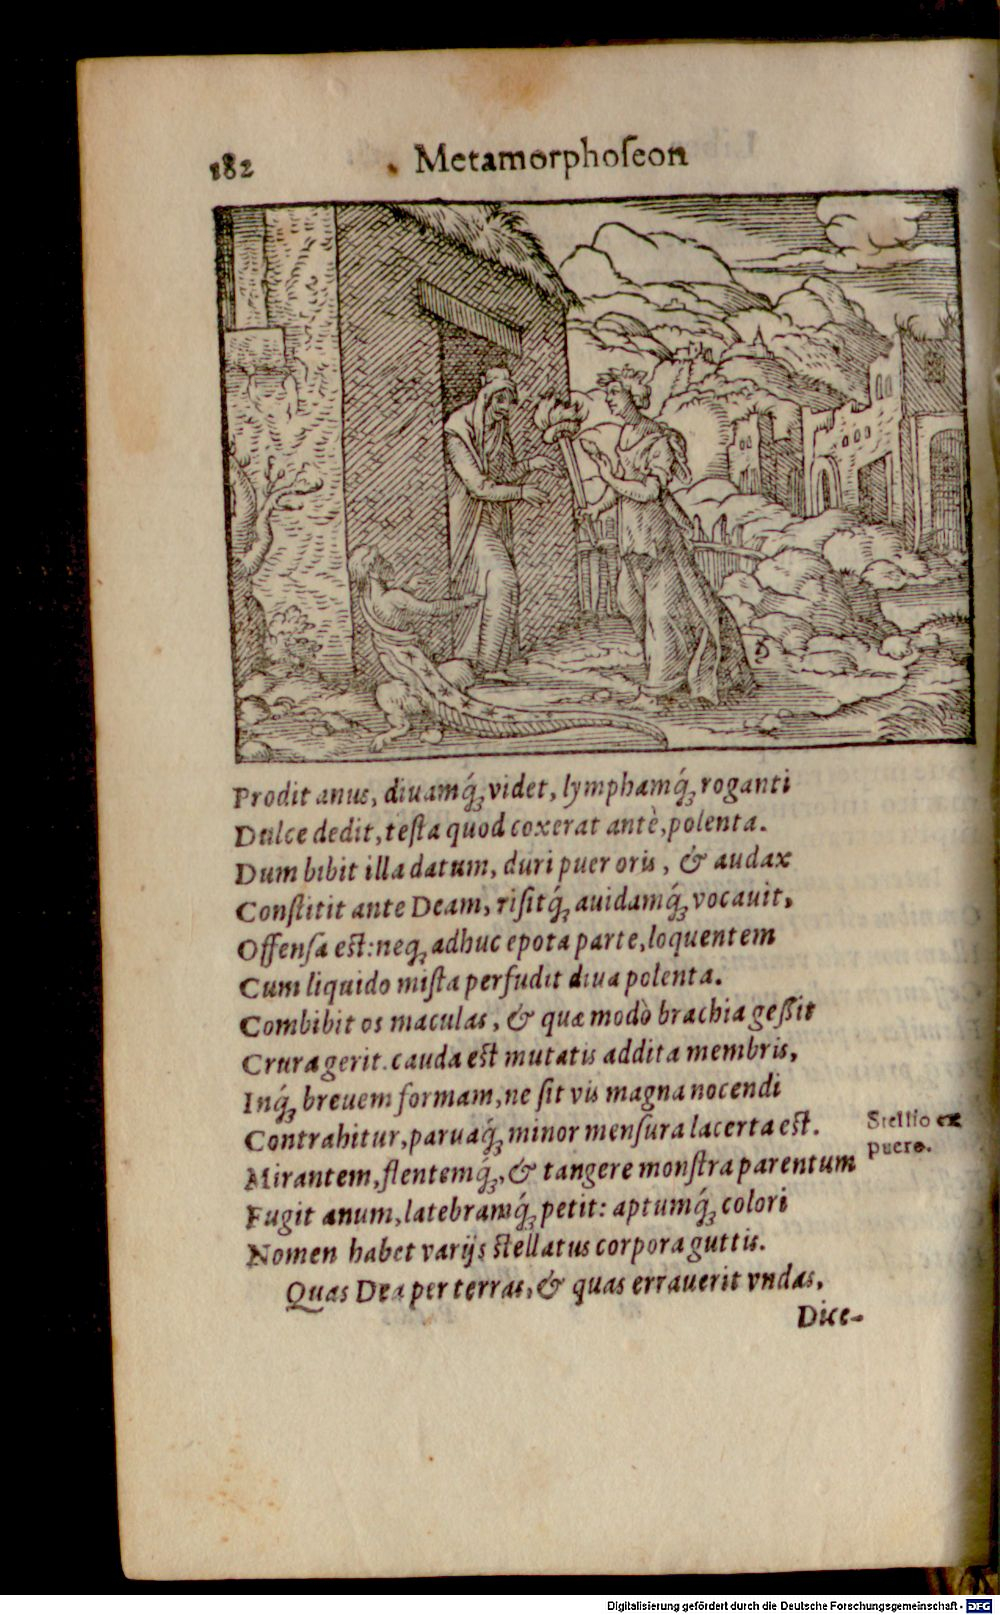 182 Metamorphoſeon
Prodit anus, diuamq́ꝫ videt, lymphamq́ꝫ roganti
Dulce dedit, teſta quod coxerat antè, polenta.
Dum bibit illa datum, duri puer oris, & audax
Conſtitit ante Deam, riſitq́ꝫ auidamq́ꝫ vocauit,
Offenſa est: neqꝫ adhuc epota parte, loquentem
Cum liquido miſta perfudit diua polenta.
Combibit os maculas, & quæ modò brachia geſsit
Crura gerit. cauda est mutatis addita membris,
Inq́ꝫ breuem formam, ne ſit vis magna nocendi
Contrahitur, paruaq́ꝫ minor menſura lacerta est.
Stellio ex
puero.
Mirantem, flentemq́ꝫ, & tangere monſtra parentum
Fugit anum, latebramq́ꝫ petit: aptumq́ꝫ colori
Nomen habet varijs stellatus corpora guttis.
Quas Dea per terras, & quas errauerit vndas,
Dice-
Digitalisierung gefördert durch die Deutsche Forschungsgemeinschaft - DFG